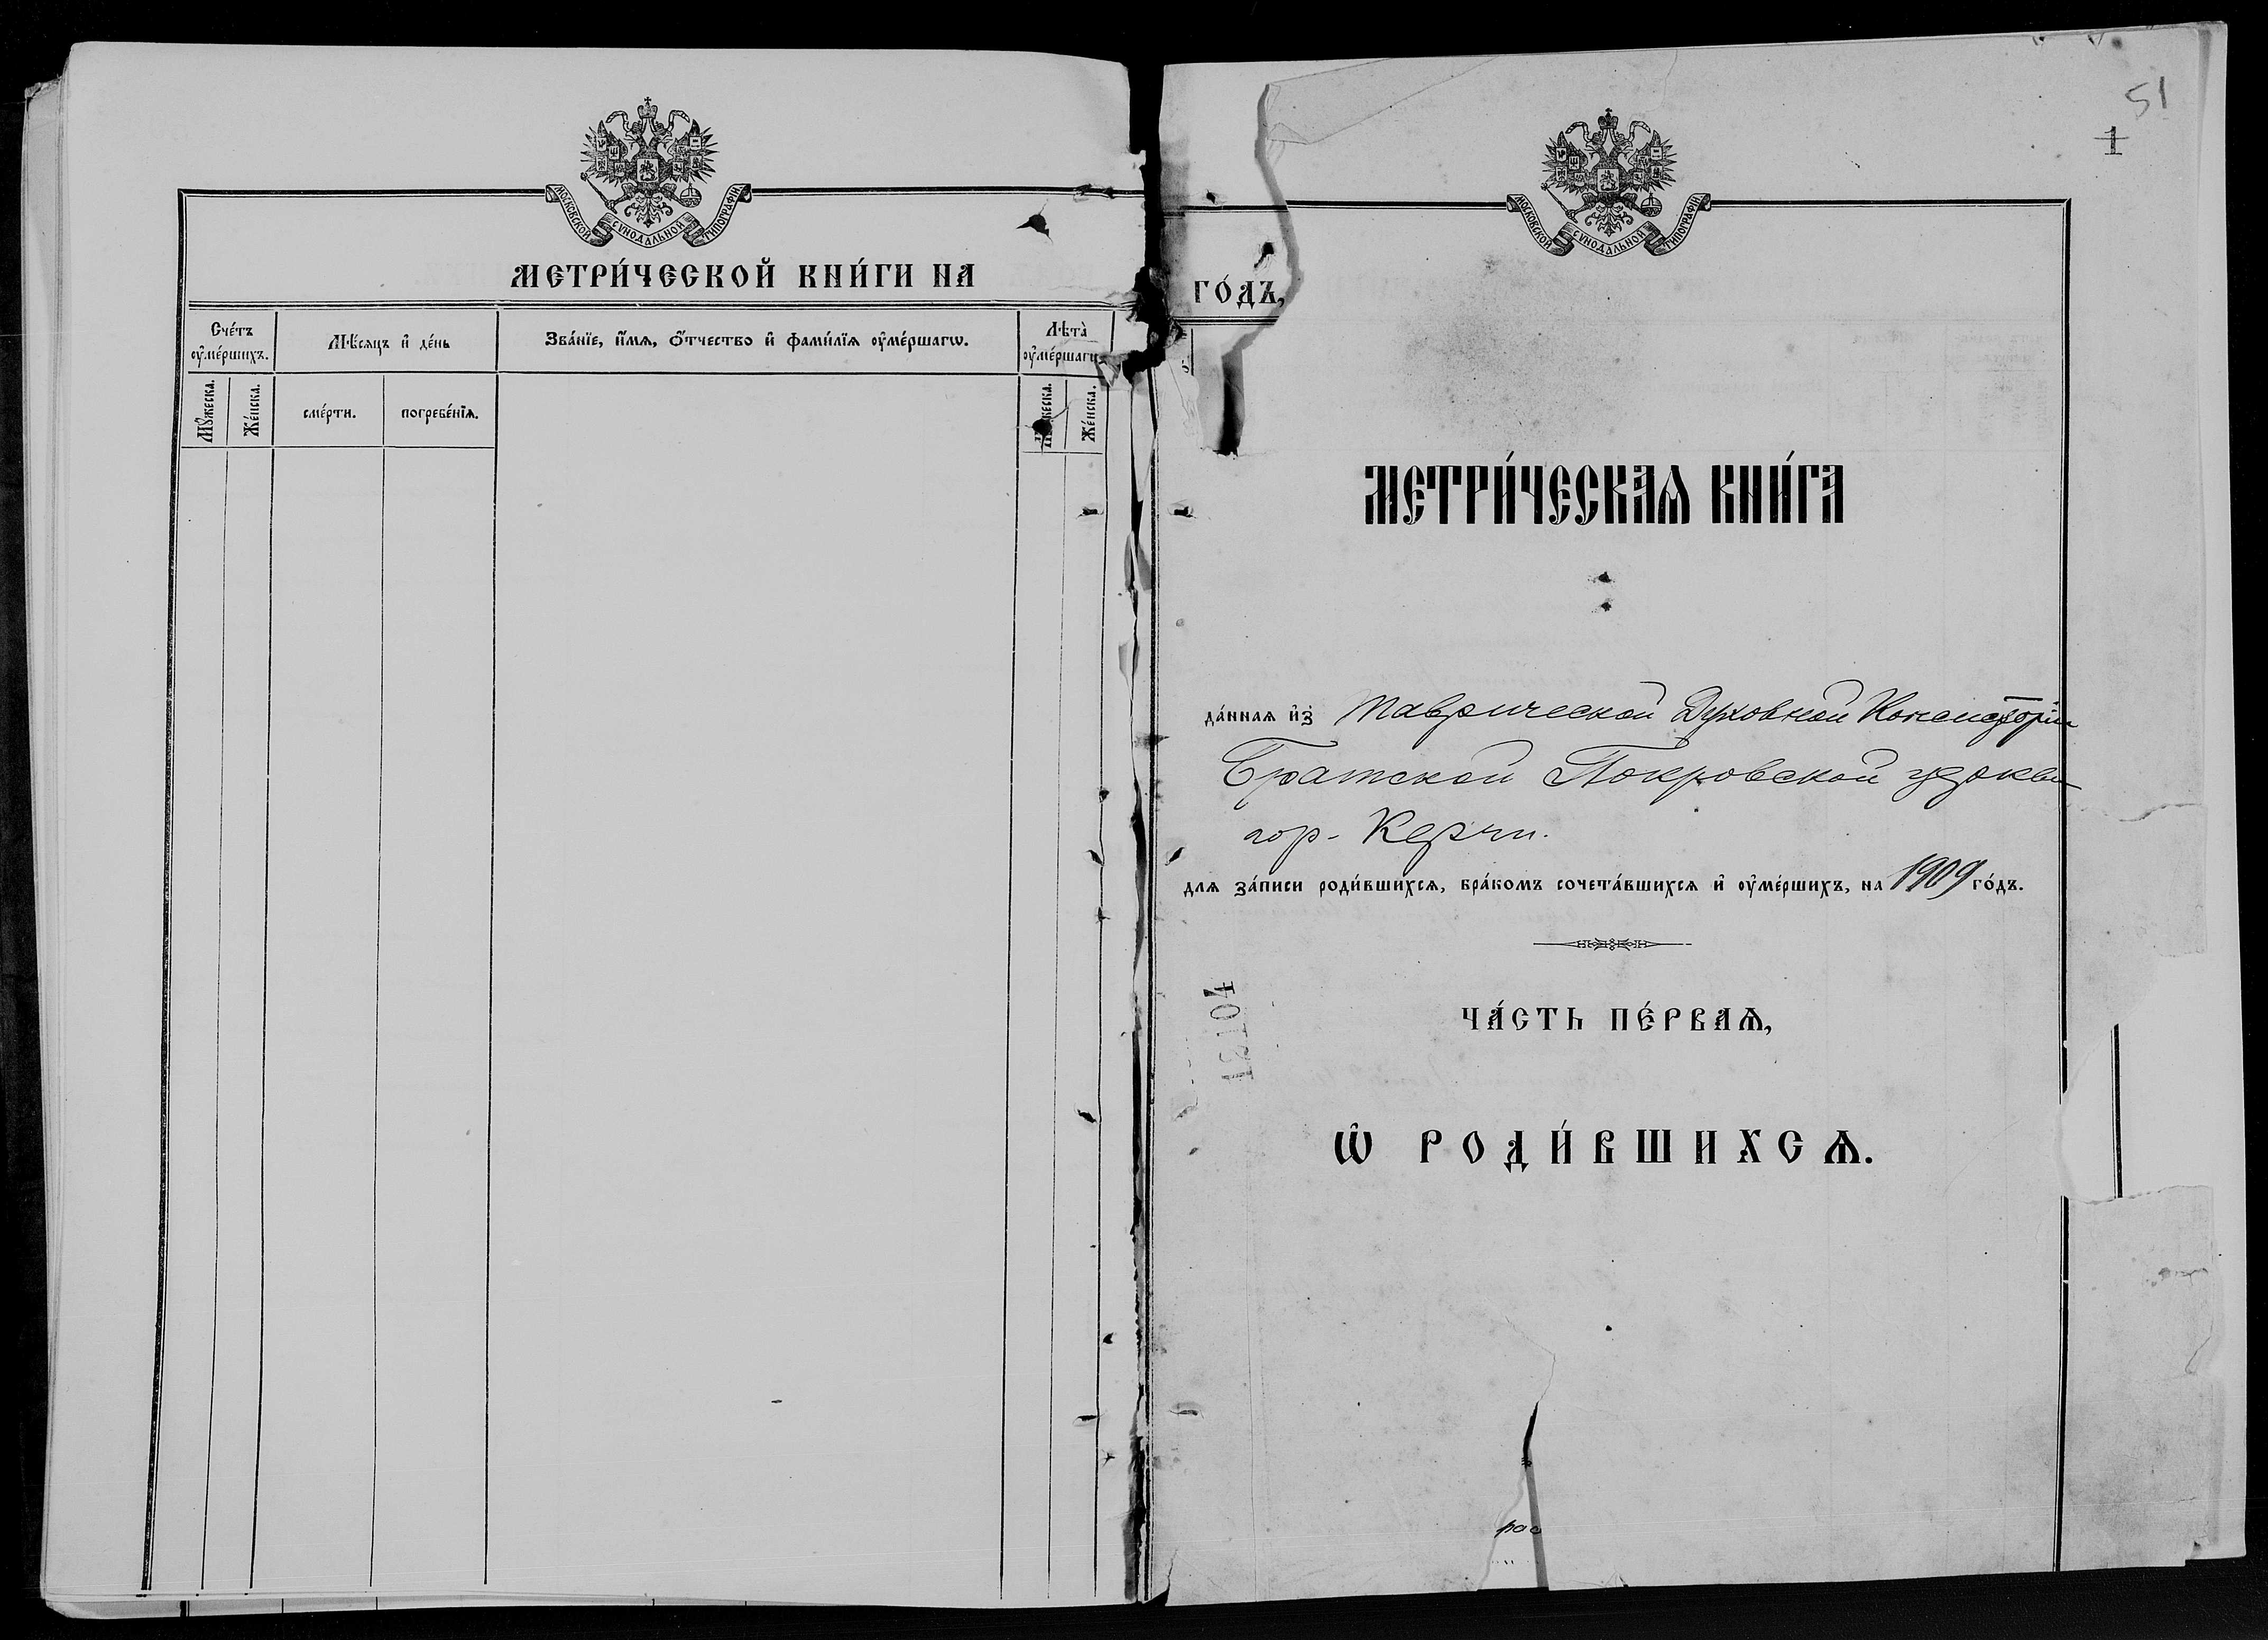 МОСКОВСКОЙ СѴНОДАЛЬНОЙ ТИПОГРАФІИ
МЕТРИ́ЧЕСКОЙ КНИ́ГИ НА
Сче́тъ ᲂу҆ме́ршихъ.
Мѣ́сяцъ и҆ де́нь
Зва́нїе, и҆́мѧ, ѻ҆́тчество и҆ фами́лїѧ ᲂу҆ме́ршагѡ.
Лѣта̀ ᲂу҆ме́ршагѡ
Мꙋ́жеска.
Же́нска.
сме́рти.
погребе́нїѧ.
Мꙋ́жеска.
Же́нска.
ГО́ДЪ,
51
1
МОСКОВСКОЙ СѴНОДАЛЬНОЙ ТИПОГРАФІИ
МЕТРИ́ЧЕСКАѦ КНИ́ГА
да́ннаѧ и҆з̾ Таврической Духовной Консисторіи
Братской Покровской церкви
гор. Керчи.
длѧ за́писи роди́вшихсѧ, бра́комъ сочета́вшихсѧ и҆ ᲂу҆ме́ршихъ, на 1909 го́дъ.
ЧА́СТЬ ПЕ́РВАѦ,
Ѽ РОДИ́ВШИХСѦ.
рас